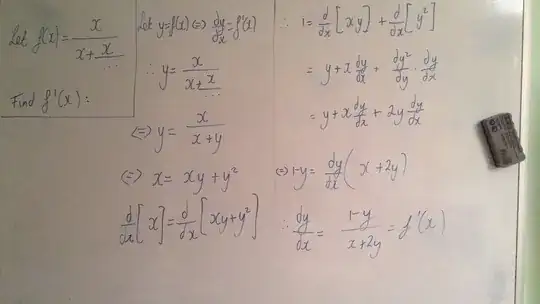 Let f(x) = x / (x + x / ...)
Find f'(x):
Let y = f(x) (=) dy/dx = f'(x)
∴ y = x / (x + x / ...)
(=) y = x / (x + y)
(=) x = xy + y²
d/dx [x] = d/dx [xy + y²]
∴ 1 = d/dx [xy] + d/dx [y²]
= y + x dy/dx + dy²/dy · dy/dx
= y + x dy/dx + 2y dy/dx
(=) 1-y = dy/dx (x + 2y)
∴ dy/dx = (1-y) / (x + 2y) = f'(x)